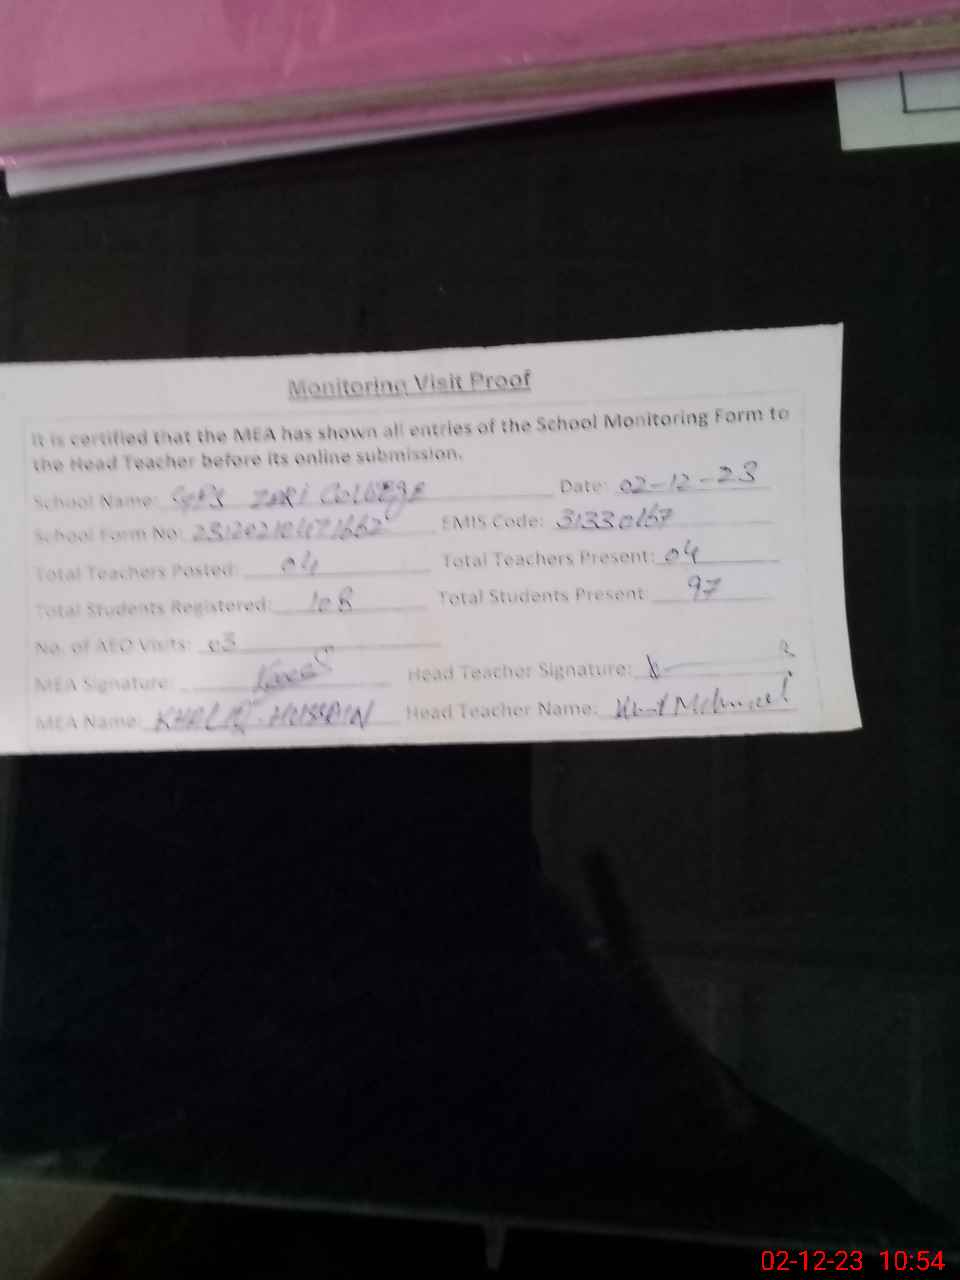 Monitoring Visit Proof
It is certified that the MEA has shown all entries of the School Monitoring Form to
the Head Teacher before its online submission.
School Name: GPS ZARI COLLEGE Date: 02-12-23
School Form No: EMIS Code: 31330167
Total Teachers Posted: 04 Total Teachers Present: 04
Total Students Registered: 108 Total Students Present: 97
No. of AEO Visits: 03
MEA Signature: Head Teacher Signature:
MEA Name: KHALIQ HUSSAIN Head Teacher Name:
02-12-23 10:54